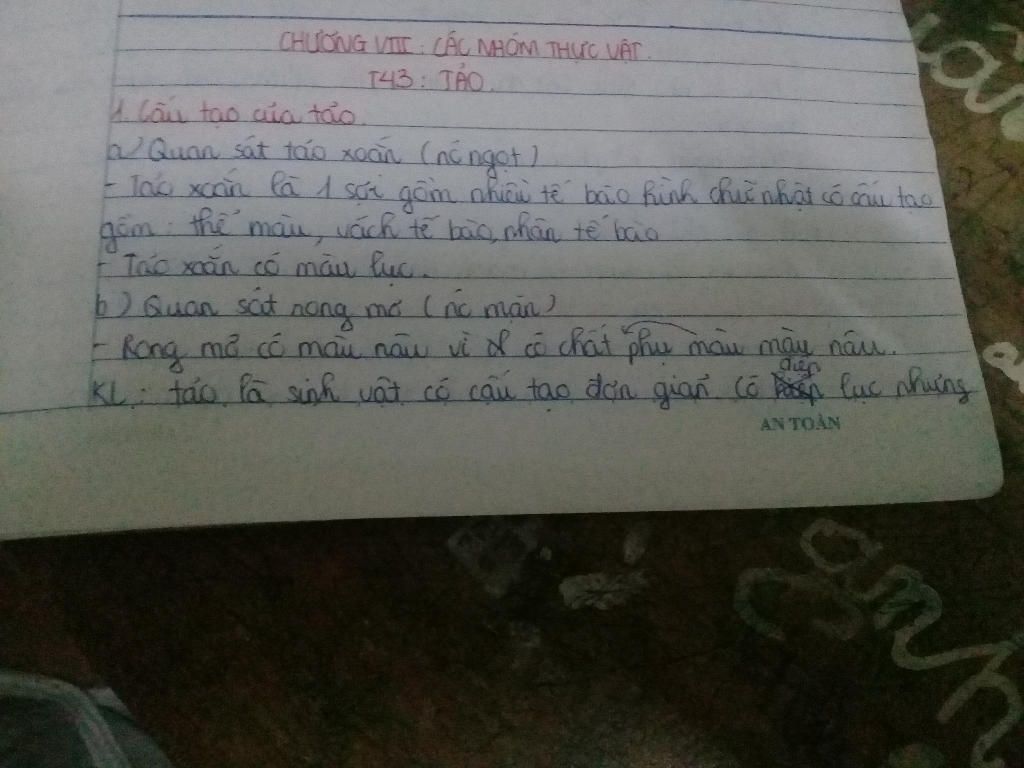 CHƯƠNG VIII : CÁC NHÓM THỰC VẬT.
T43 : TẢO.
1. Cấu tạo của tảo.
a) Quan sát tảo xoắn (nc ngọt)
- Tảo xoắn là 1 sợi gồm nhiều tế bào hình chữ nhật có cấu tạo
gồm : thể màu, vách tế bào, nhân tế bào
- Tảo xoắn có màu lục.
b) Quan sát rong mơ (nc mặn)
- Rong mơ có màu nâu vì có chất phụ màu màu nâu.
KL : tảo là sinh vật có cấu tạo đơn giản có diệp lục nhưng
AN TOÀN